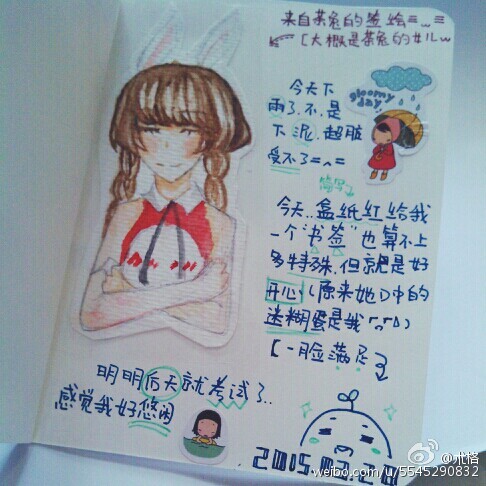 来自茶兔的签绘=﹏=
[大概是茶兔的女儿w
gloomy day
今天下
雨了.不.是
下泥.超脏
受不了=^=
简写
今天.盒纸红给我
一个"书签"也算不上
多特殊.但就是好
开心(原来她口中的
迷糊蛋是我
[一脸满足
明明后天就考试了..
感觉我好悠闲
2015.03.28
weibo.com/u/5545290832